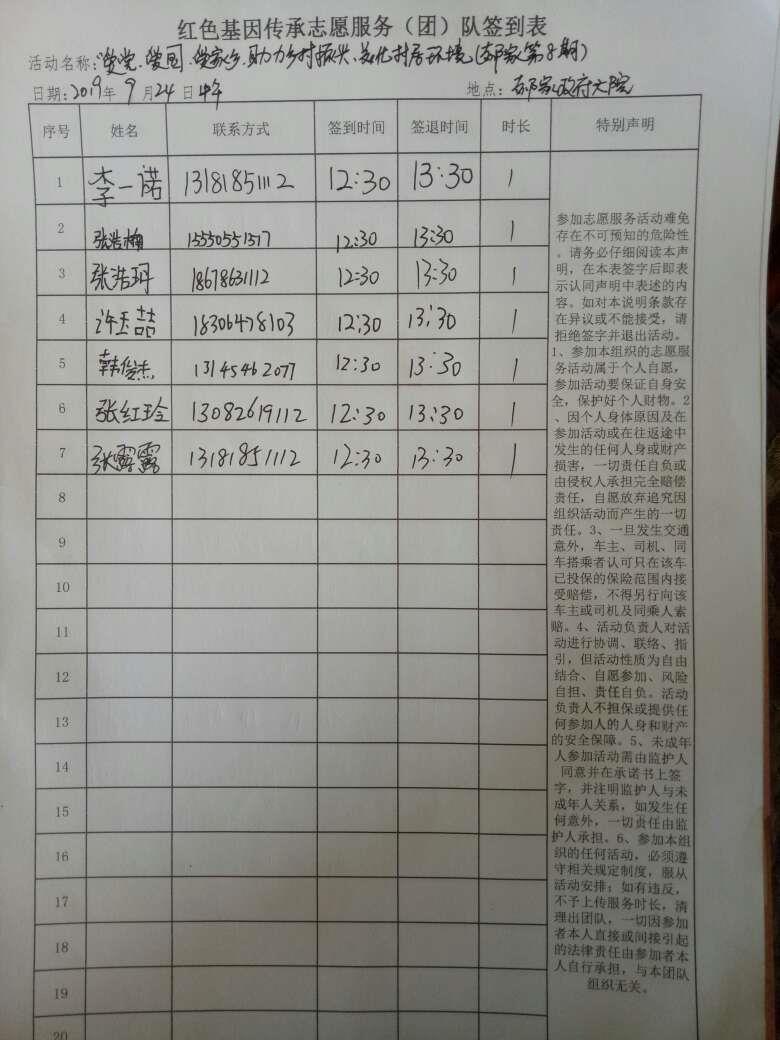 红色基因传承志愿服务（团）队签到表
活动名称："爱党、爱国、爱家乡、助力乡村振兴、美化村居环境（邵家第8期）
日期：2019年 9月24日中午 地点：邵家政府大院
序号 姓名 联系方式 签到时间 签退时间 时长 特别声明
1 李一诺 13181851112 12:30 13:30 1
2 张浩楠 15550551577 12:30 13:30 1
3 张浩玥 18678631112 12:30 13:30 1
4 许玉喆 18306478103 12:30 13:30 1
5 韩俊杰 13145462077 12:30 13:30 1
6 张红玲 13082619112 12:30 13:30 1
7 张露露 13181851112 12:30 13:30 1
8
9
10
11
12
13
14
15
16
17
18
19
20
参加志愿服务活动难免
存在不可预知的危险性
。请务必仔细阅读本声
明，在本表签字后即表
示认同声明中表述的内
容。如对本说明条款存
在异议或不能接受，请
拒绝签字并退出活动。
1、参加本组织的志愿服
务活动属于个人自愿，
参加活动要保证自身安
全，保护好个人财物。2
、因个人身体原因及在
参加活动或在往返途中
发生的任何人身或财产
损害，一切责任自负或
由侵权人承担完全赔偿
责任，自愿放弃追究因
组织活动而产生的一切
责任。3、一旦发生交通
意外，车主、司机、同
车搭乘者认可只在该车
已投保的保险范围内接
受赔偿，不得另行向该
车主或司机及同乘人索
赔。4、活动负责人对活
动进行协调、联络、指
引，但活动性质为自由
结合、自愿参加、风险
自担、责任自负。活动
负责人不担保或提供任
何参加人的人身和财产
的安全保障。5、未成年
人参加活动需由监护人
同意并在承诺书上签
字，并注明监护人与未
成年人关系，如发生任
何意外，一切责任由监
护人承担。6、参加本组
织的任何活动，必须遵
守相关规定制度，服从
活动安排；如有违反，
不予上传服务时长，清
理出团队，一切因参加
者本人直接或间接引起
的法律责任由参加者本
人自行承担，与本团队
组织无关。